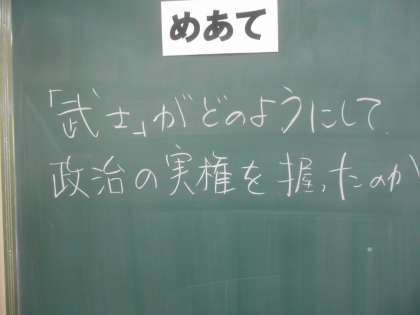 めあて
「武士」がどのようにして
政治の実権を握ったのか